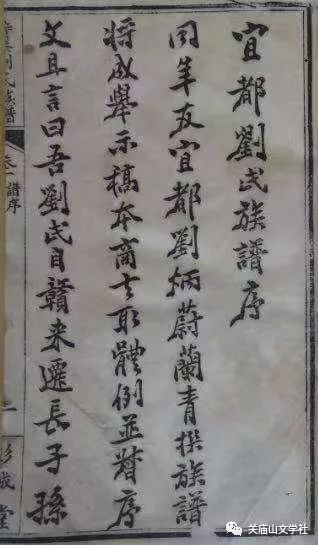 宜都劉氏族譜序
同年友宜都劉炳蔚蘭青撰族譜
將成舉示稿本商去取體例並督序
文且言曰吾劉氏自贛來遷長子孫
劉氏族譜
卷一 譜序
彭城堂
关庙山文学社